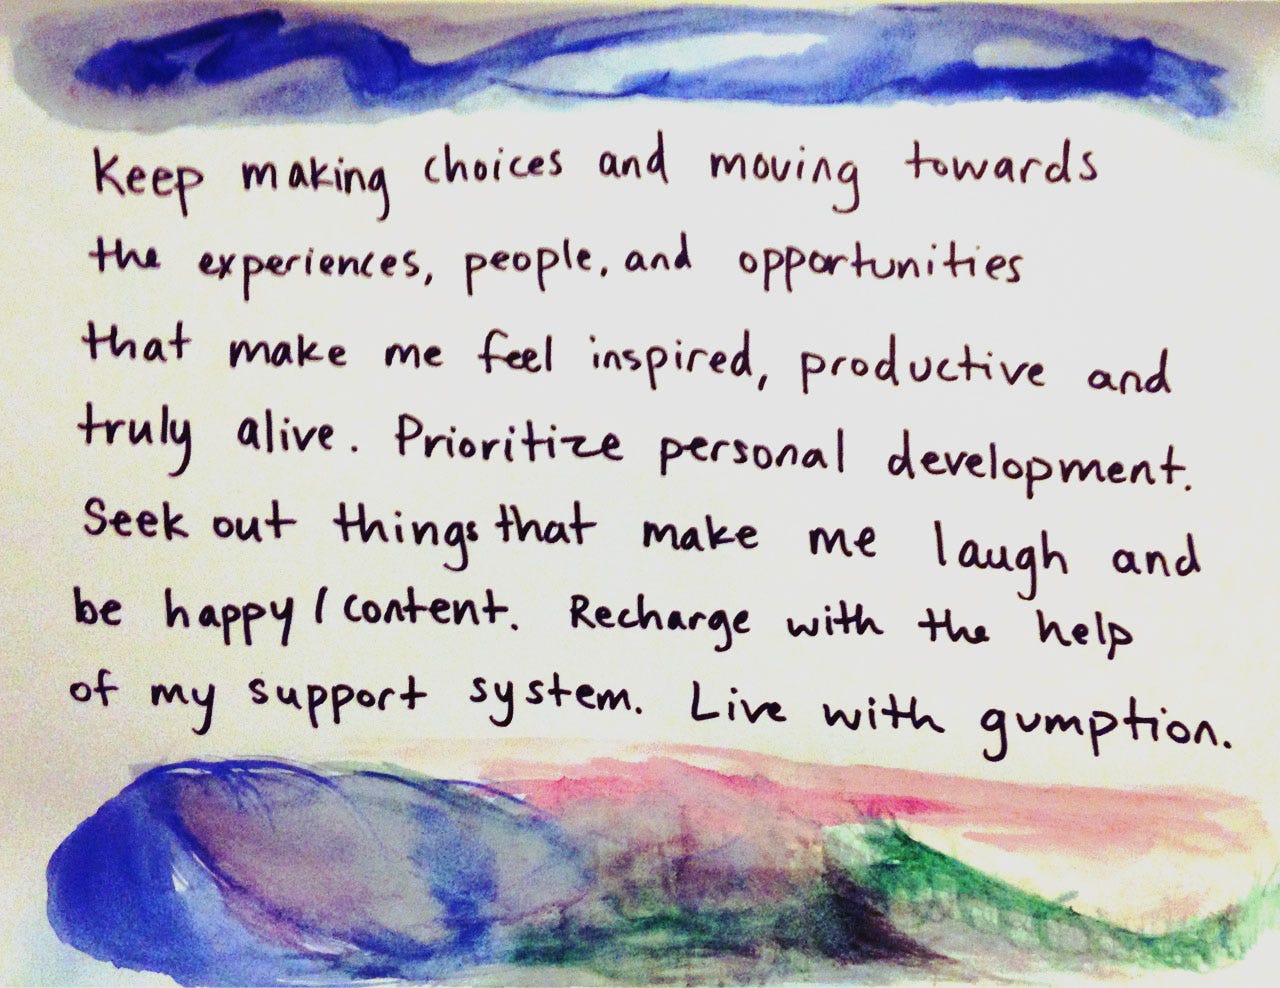 Keep making choices and moving towards
the experiences, people, and opportunities
that make me feel inspired, productive and
truly alive. Prioritize personal development.
Seek out things that make me laugh and
be happy/content. Recharge with the help
of my support system. Live with gumption.